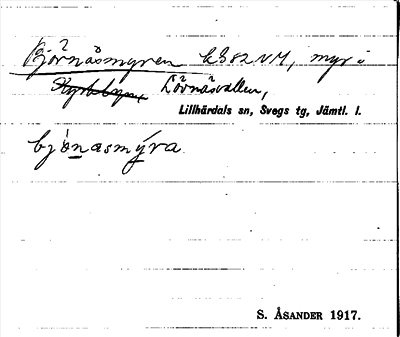 Björnåsmyren LG82VM, myr i
Lövnäsvallen,
Lillhärdals sn, Svegs tg, Jämtl. l.
bjònasmýra
S. ÅSANDER 1917.